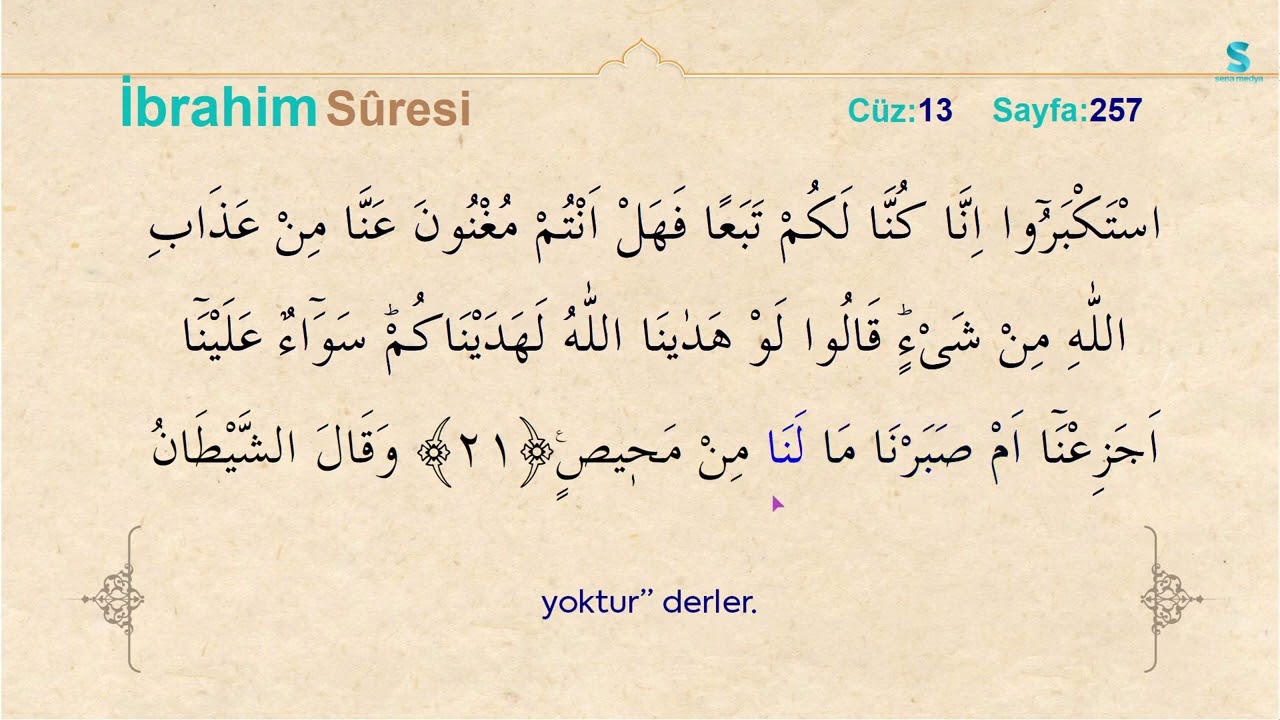 S
sena medya
İbrahim Sûresi
Cüz:13 Sayfa:257
اسْتَكْبَرُٓوا اِنَّا كُنَّا لَكُمْ تَبَعًا فَهَلْ اَنْتُمْ مُغْنُونَ عَنَّا مِنْ عَذَابِ
اللّٰهِ مِنْ شَىْءٍۜ قَالُوا لَوْ هَدٰينَا اللّٰهُ لَهَدَيْنَاكُمْۜ سَوَٓاءٌ عَلَيْنَٓا
اَجَزِعْنَٓا اَمْ صَبَرْنَا مَا لَنَا مِنْ مَحٖيصٍ ࣖ ﴿٢١﴾ وَقَالَ الشَّيْطَانُ
yoktur” derler.